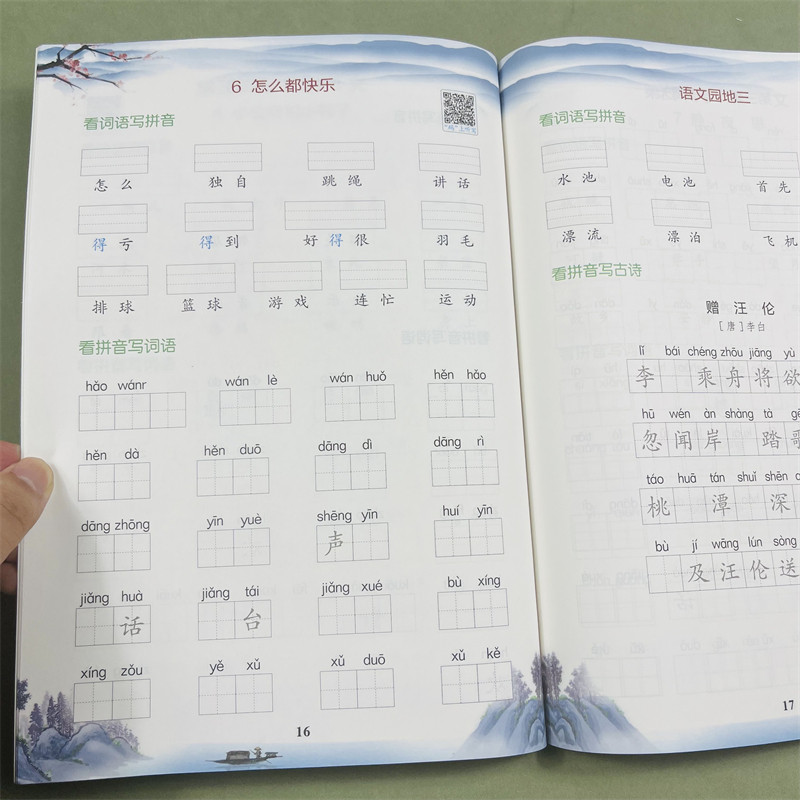 6 怎么都快乐
看词语写拼音
"码"上听写
怎么 独自 跳绳 讲话
得亏 得到 好得很 羽毛
排球 篮球 游戏 连忙 运动
看拼音写词语
hǎo wánr wán lè wán huǒ hěn hǎo
hěn dà hěn duō dāng dì dāng rì
dāng zhōng yīn yuè shēng yīn huí yīn
声
jiǎng huà jiǎng tái jiǎng xué bù xíng
话 台
xíng zǒu yě xǔ xǔ duō xǔ kě
16
语文园地三
看词语写拼音
水池 电池 首先
漂流 漂泊 飞机
看拼音写古诗
赠汪伦
[唐]李白
lǐ bái chéng zhōu jiāng yù
李 乘舟将欲
hū wén àn shàng tà gē
忽闻岸 踏歌
táo huā tán shuǐ shēn
桃 潭 深
bù jí wāng lún sòng
及汪伦送
17